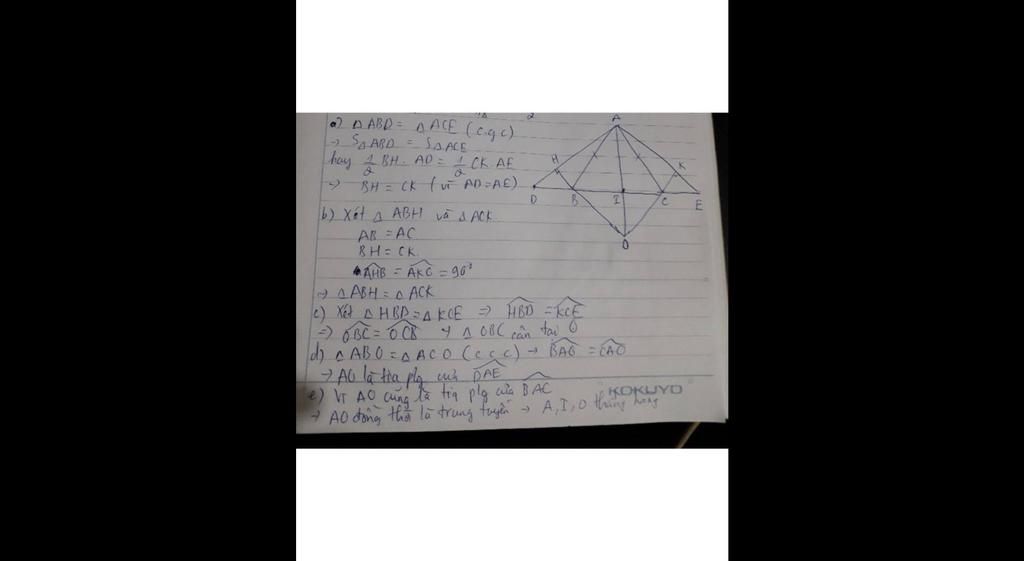 2
A
a) △ABD = △ACE (c.g.c)
→ S△ABD = S△ACE
hay 1/2 BH. AD = 1/2 CK. AE
→ BH = CK (vì AD = AE)
H
K
D B I C E
O
b) Xét △ ABH và △ACK
AB = AC
BH = CK
AHB = AKC = 90°
→ △ABH = △ACK
c) Xét △HBD = △KCE ⇒ HBD = KCE
⇒ OBC = OCB → △ OBC cân tại O
d) △ABO = △ACO (c.c.c) → BAO = CAO
→ AO là tia plg của DAE
e) Vì AO cũng là tia plg của BAC
KOKUYO
→ AO đồng thời là trung tuyến → A, I, O thẳng hàng